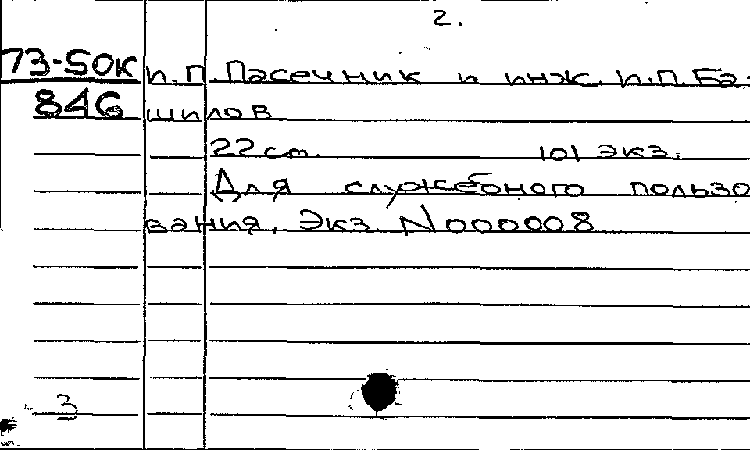 2.
73-50к И.П. Пасечник и инж. И.П. Ба-
846 шилов
22 ст. 101 экз.
Для служебного пользо
вания, Экз N000008
3